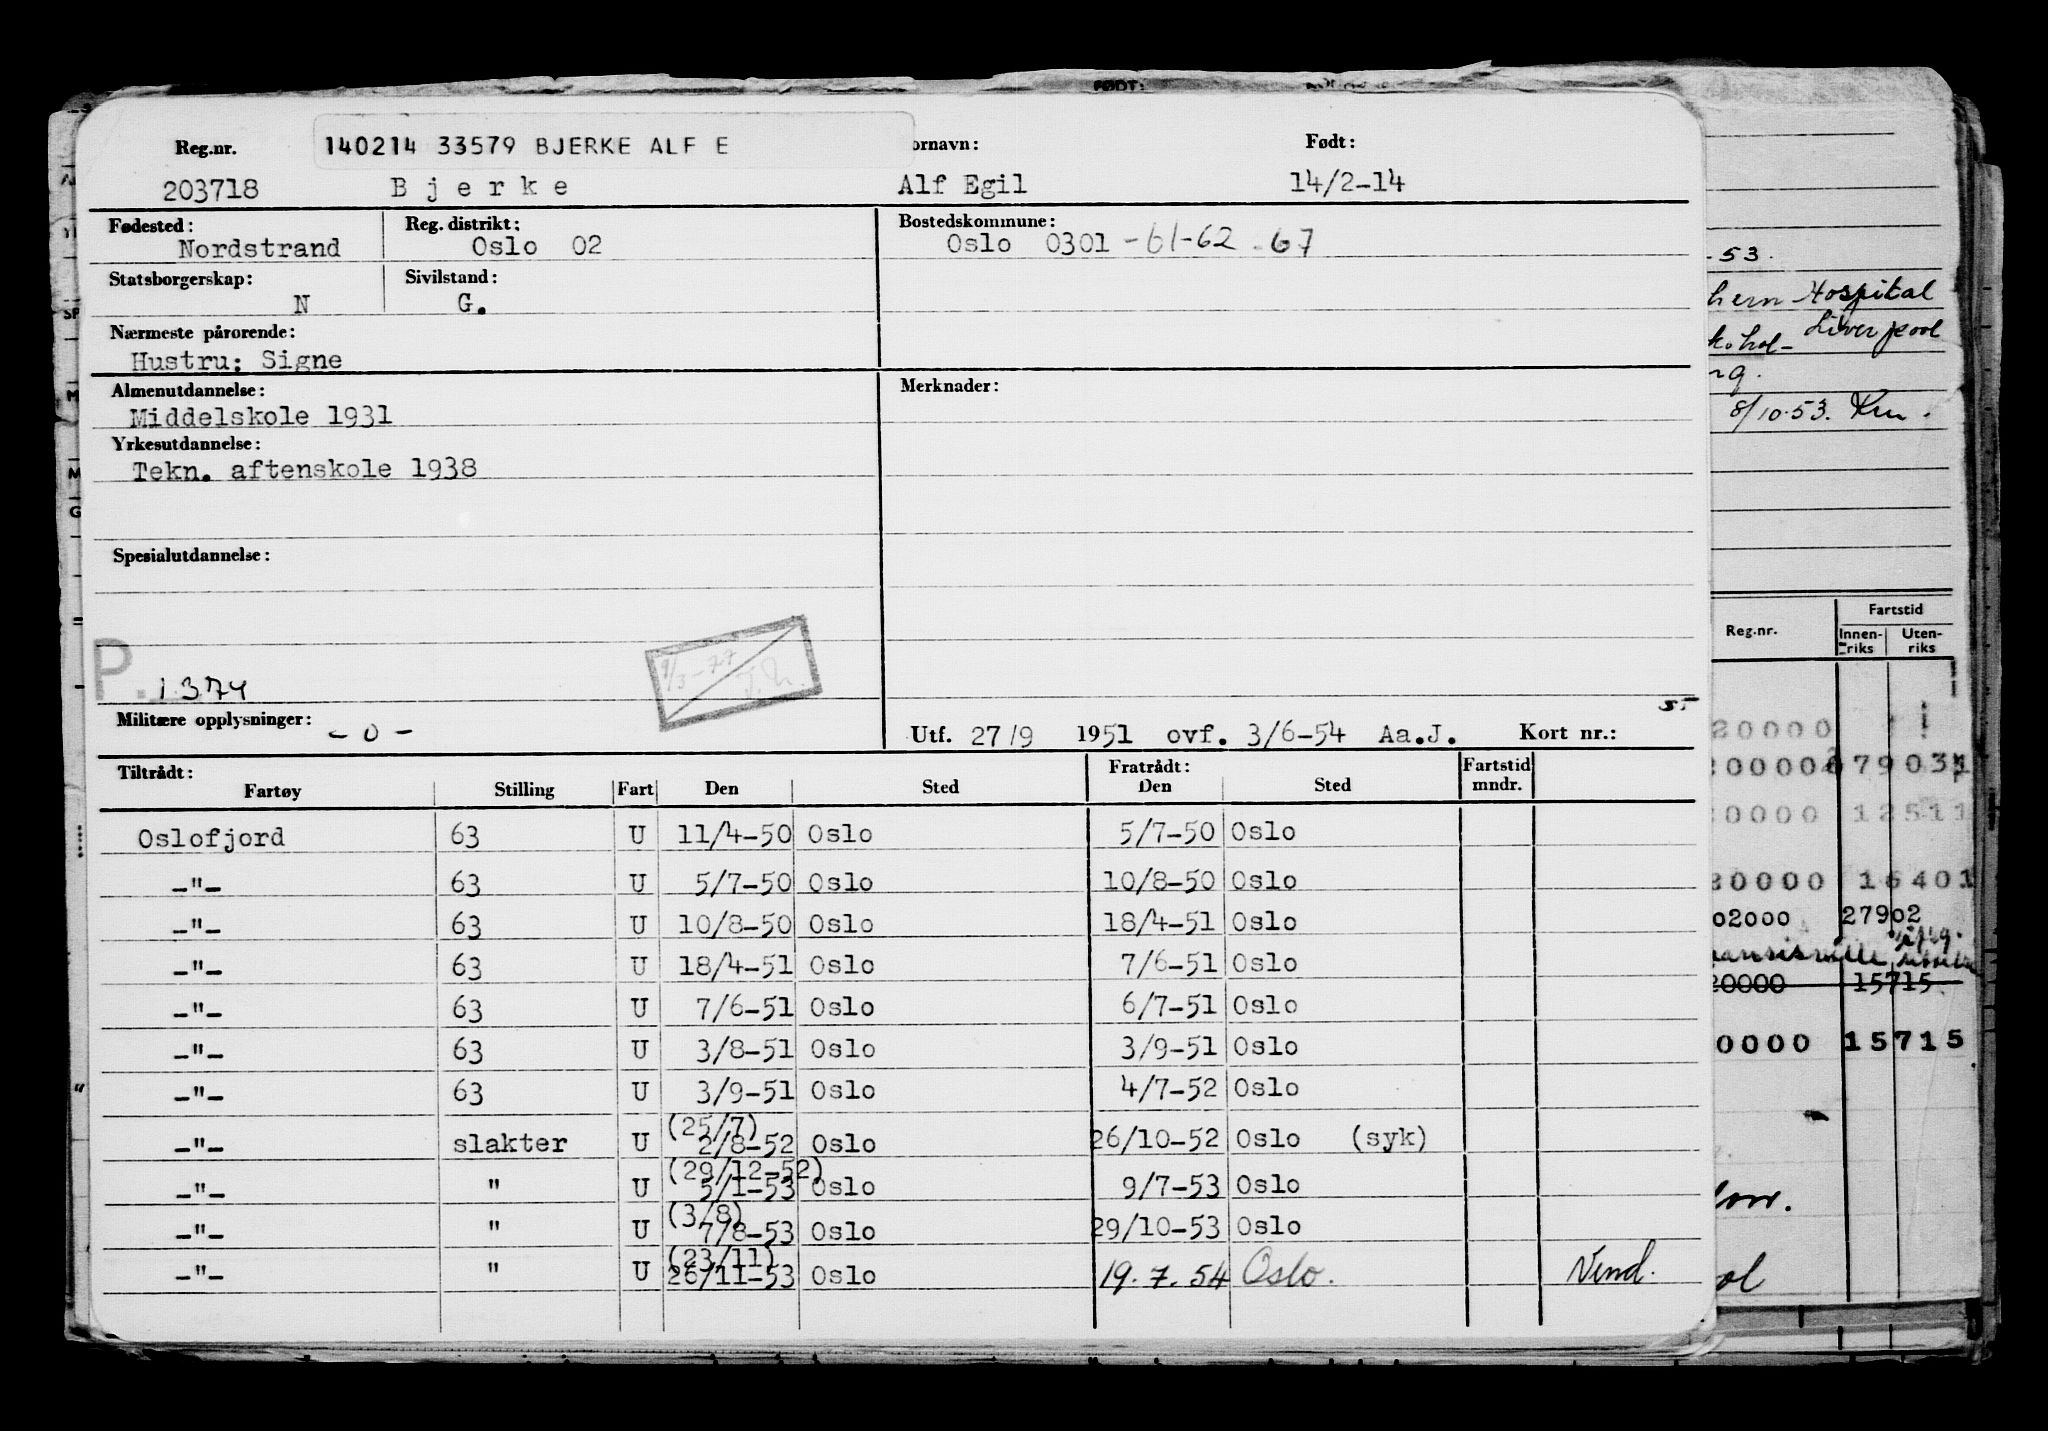 FØDT:
Reg.nr. 140214 33579 BJERKE ALF E ornavn: Født:
203718 Bjerke Alf Egil 14/2-14
Fødested: Reg. distrikt: Bostedskommune:
Nordstrand Oslo 02 Oslo 0301 -61-62 -67
Statsborgerskap: Sivilstand:
N G.
Nærmeste pårørende:
Hustru: Signe
Almenutdannelse: Merknader:
Middelskole 1931
Yrkesutdannelse:
Tekn. aftenskole 1938
Spesialutdannelse:
P. 1374
Militære opplysninger: - 0 - Utf. 27/9 1951 ovf. 3/6-54 Aa.J. Kort nr.:
Tiltrådt: Fratrådt: Fartstid
Fartøy Stilling Fart Den Sted Den Sted mndr.
Oslofjord 63 U 11/4-50 Oslo 5/7-50 Oslo
-"- 63 U 5/7-50 Oslo 10/8-50 Oslo
-"- 63 U 10/8-50 Oslo 18/4-51 Oslo
-"- 63 U 18/4-51 Oslo 7/6-51 Oslo
-"- 63 U 7/6-51 Oslo 6/7-51 Oslo
-"- 63 U 3/8-51 Oslo 3/9-51 Oslo
-"- 63 U 3/9-51 Oslo 4/7-52 Oslo
(25/7)
-"- slakter U 2/8-52 Oslo 26/10-52 Oslo (syk)
(29/12-52)
-"- " U 5/1-53 Oslo 9/7-53 Oslo
(3/8)
-"- " U 7/8-53 Oslo 29/10-53 Oslo
(23/11)
-"- " U 26/11-53 Oslo 19. 7. 54 Oslo. Vend.
-53.
hern Hospital
Liverpool
8/10.53.
Fartstid
Reg.nr. Innenriks Utenriks
20000
12511
20000 16401
02000 27902
20000 15715
0000 15715